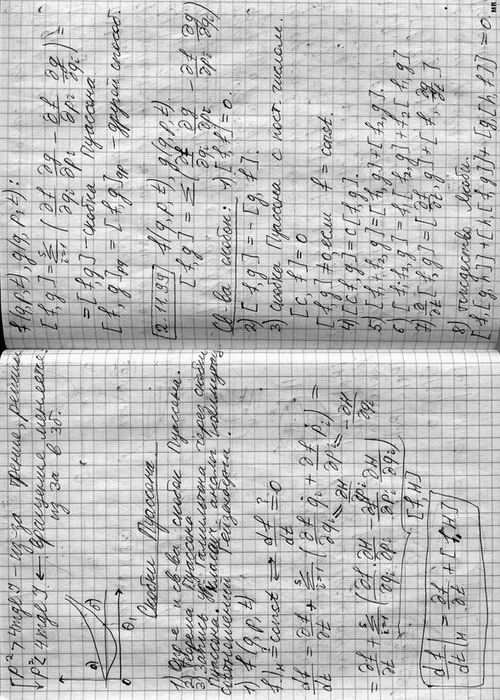 √p² > 4mglJ – из-за трение, решили
√p² < 4mglJ ← вращение меняется
из за в зб.
θ₁
Скобки Пуассона
1) Опр-е и св-ва скобок Пуассона.
2) Теорема Пуассона
3) Запись ур. Гамильтона через скобки
Пуассона. Классич. аналог коммутац.
соотношений Гейзенберга.
1) f(q, p, t)
f|_H = const ⇄ df/dt = 0
df/dt = ∂f/∂t + Σ_{i=1}^{s} (∂f/∂q_i q̇_i + ∂f/∂p_i ṗ_i) =
∂H/∂p_i   -∂H/∂q_i
= ∂f/∂t + Σ_{i=1}^{s} (∂f/∂q_i ∂H/∂p_i - ∂f/∂p_i ∂H/∂q_i)
[f, H]
df/dt|_H = ∂f/∂t + [f, H]
f(q, p, t), g(q, p, t):
[f, g] = Σ_{i=1}^{s} (∂f/∂q_i ∂g/∂p_i - ∂f/∂p_i ∂g/∂q_i) =
= [f, g] - скобка Пуассона
[f, g]_pq = [f, g]_qp - другой способ.
2.11.99 f(q, p, t), g(q, p, t)
[f, g] = Σ (∂f/∂q_i ∂g/∂p_i - ∂f/∂p_i ∂g/∂q_i)
Св-ва скобок: 1) [f, f] = 0.
2) [f, g] = -[g, f].
3) скобка Пуассона с пост. числом.
[c, f] = 0
[f, g] ≠ 0 если f = const.
4) [cf, g] = c[f, g].
5) [f₁ + f₂, g] = [f₁, g] + [f₂, g].
6) [f₁f₂, g] = f₁[f₂, g] + f₂[f₁, g]
7) ∂/∂t [f, g] = [∂f/∂t, g] + [f, ∂g/∂t].
8) тождество Якоби.
[f, [g, h]] + [h, [f, g]] + [g, [h, f]] = 0